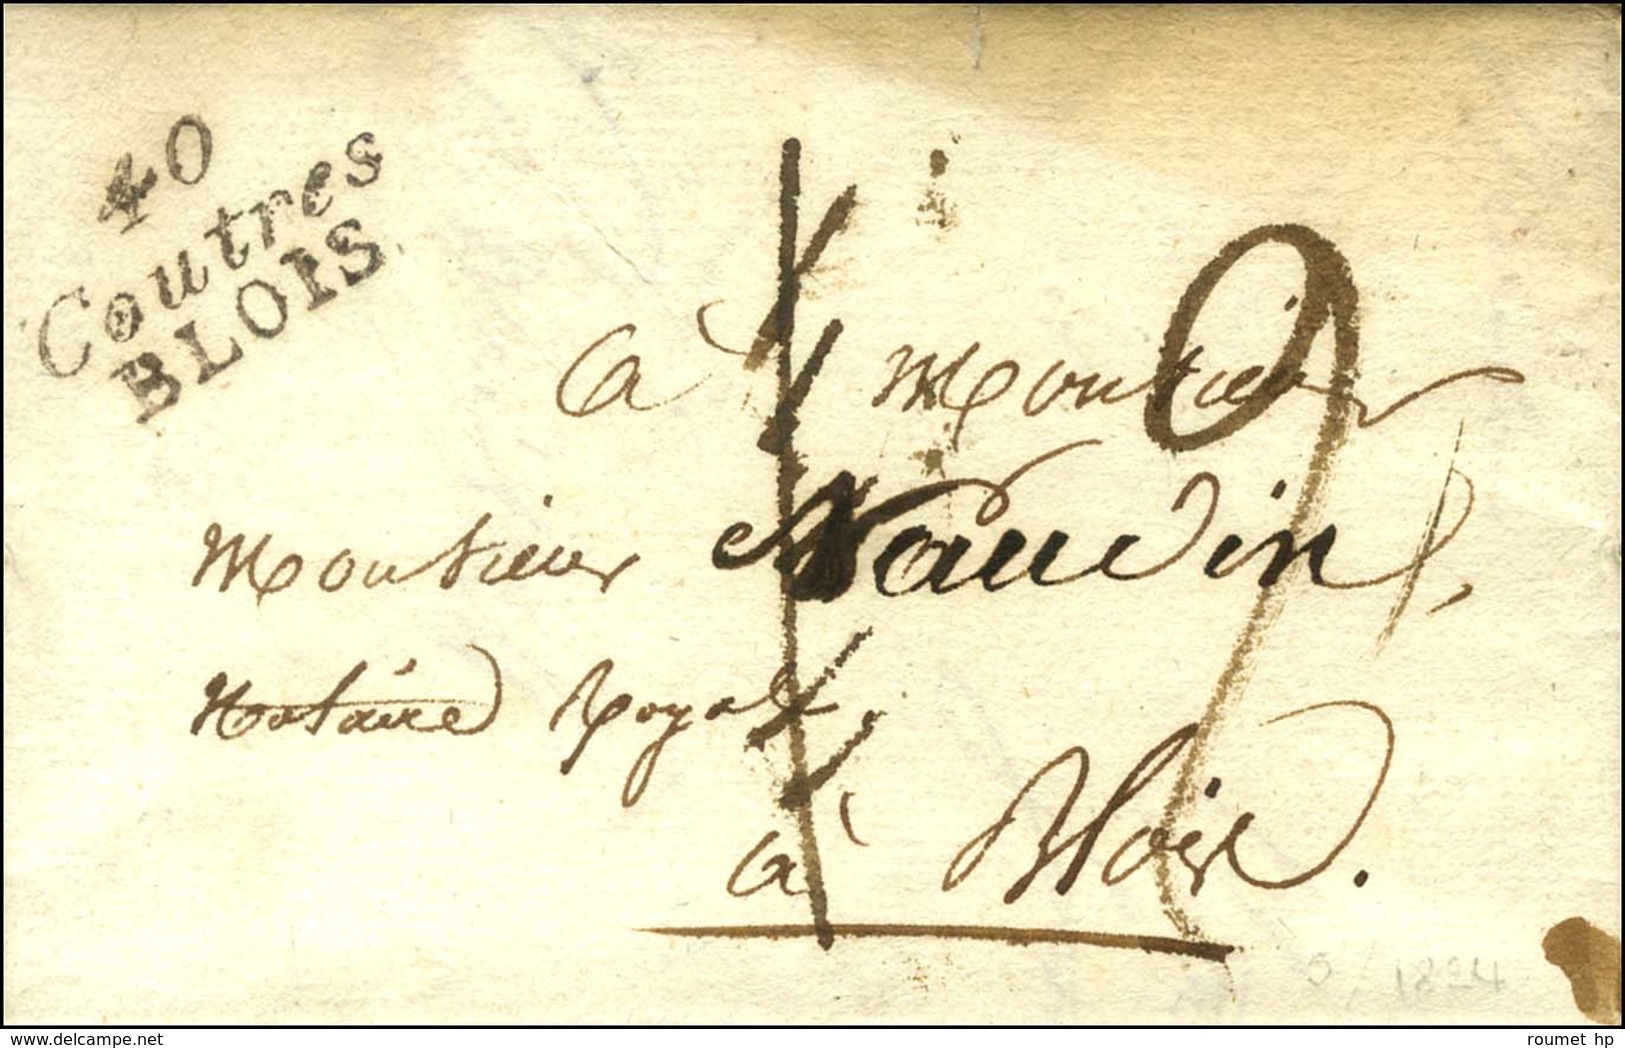 40
Coutres
BLOIS
à Monsieur
Monsieur Naudin,
Notaire Royal,
à Blois.
1824
www.delcampe.net
roumet hp